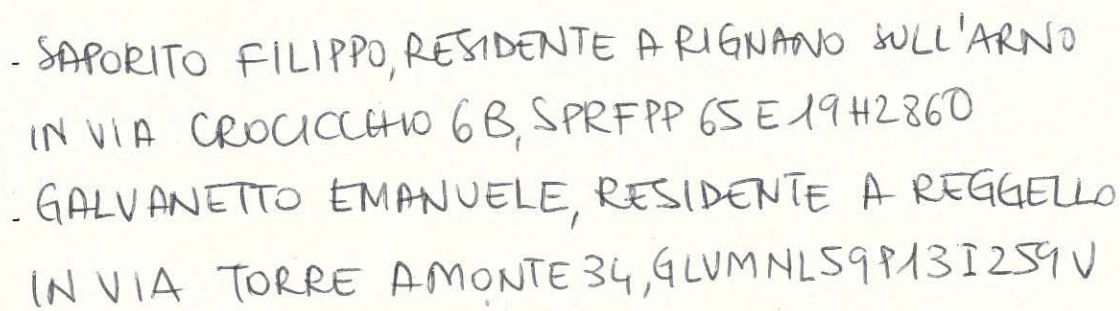 - SAPORITO FILIPPO, RESIDENTE A RIGNANO SULL'ARNO
IN VIA CROCICCHIO 6B, SPRFPP65E19H286O
- GALVANETTO EMANUELE, RESIDENTE A REGGELLO
IN VIA TORRE A MONTE 34, GLVMNL59P13I259V